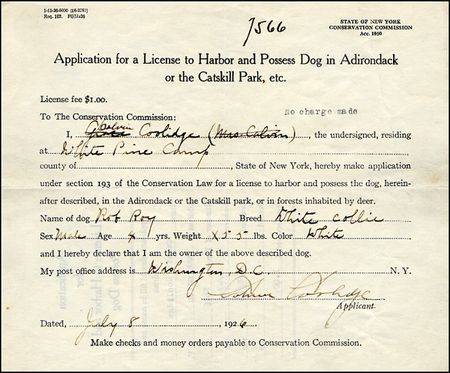 1566
STATE OF NEW YORK
CONSERVATION COMMISSION
Application for a License to Harbor and Possess Dog in Adirondack
or the Catskill Park, etc.
License fee $1.00.
No charge made
To The Conservation Commission:
Calvin
I, Grace Coolidge (Mrs Calvin), the undersigned, residing
at White Pine Camp
county of, State of New York, hereby make application
under section 193 of the Conservation Law for a license to harbor and possess the dog, herein-
after described, in the Adirondack or the Catskill park, or in forests inhabited by deer.
Name of dog Rob Roy Breed White Collie
Sex Male Age 4 yrs. Weight X55 lbs. Color White
and I hereby declare that I am the owner of the above described dog.
My post office address is Washington, D.C. N. Y.
Calvin Coolidge
Applicant.
Dated, July 8 1926
Make checks and money orders payable to Conservation Commission.